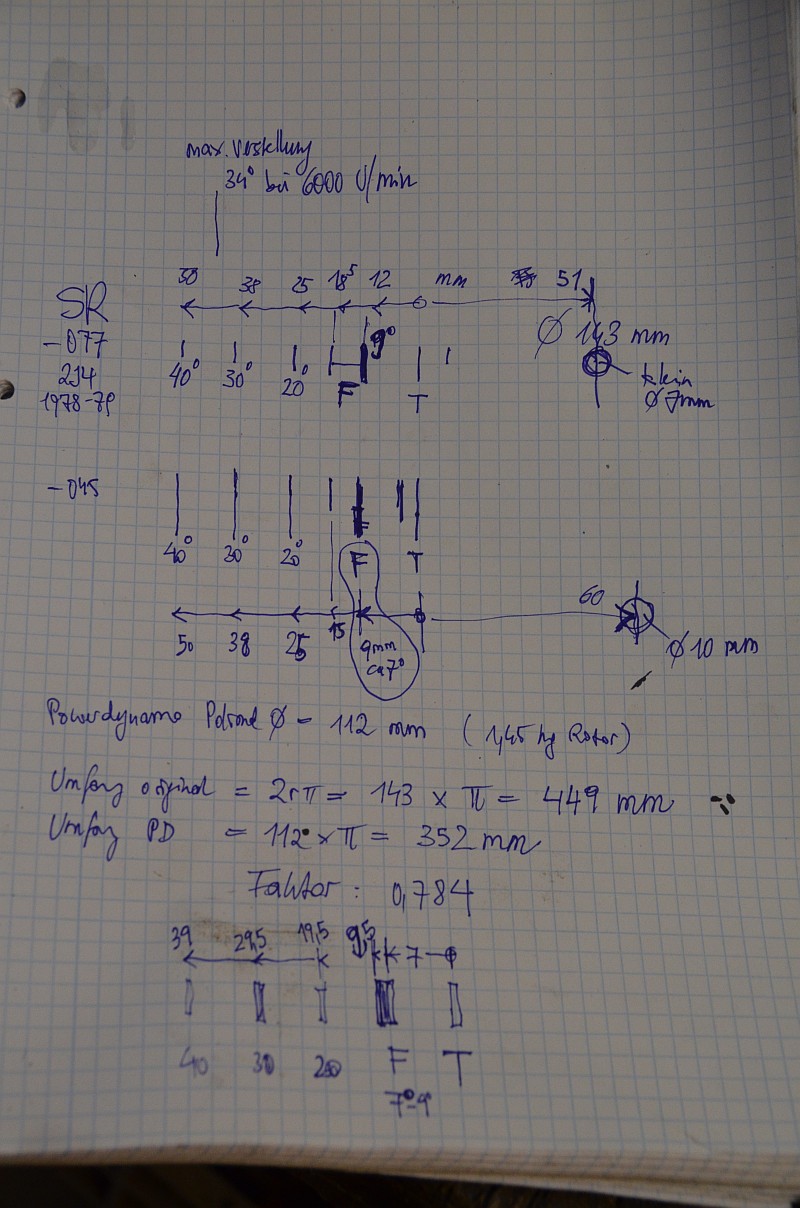 max. Verstellung
34° bei 6000 U/min
50 38 25 18⁵ 12 mm 51
SR
-077
234
1978-79
40° 30° 20° F 9° T
Ø 143 mm
klein
Ø 7mm
-045
40° 30° 20° F T
50 38 25 15 9mm 60
ca 7°
Ø 10 mm
Powerdynamo Ø = 112 mm (1,45 kg Rotor)
Umfang original = 2rπ = 143 × π = 449 mm
Umfang PD = 112 × π = 352 mm
Faktor: 0,784
39 29,5 19,5 9,5 7
40 30 20 F T
7°-9°